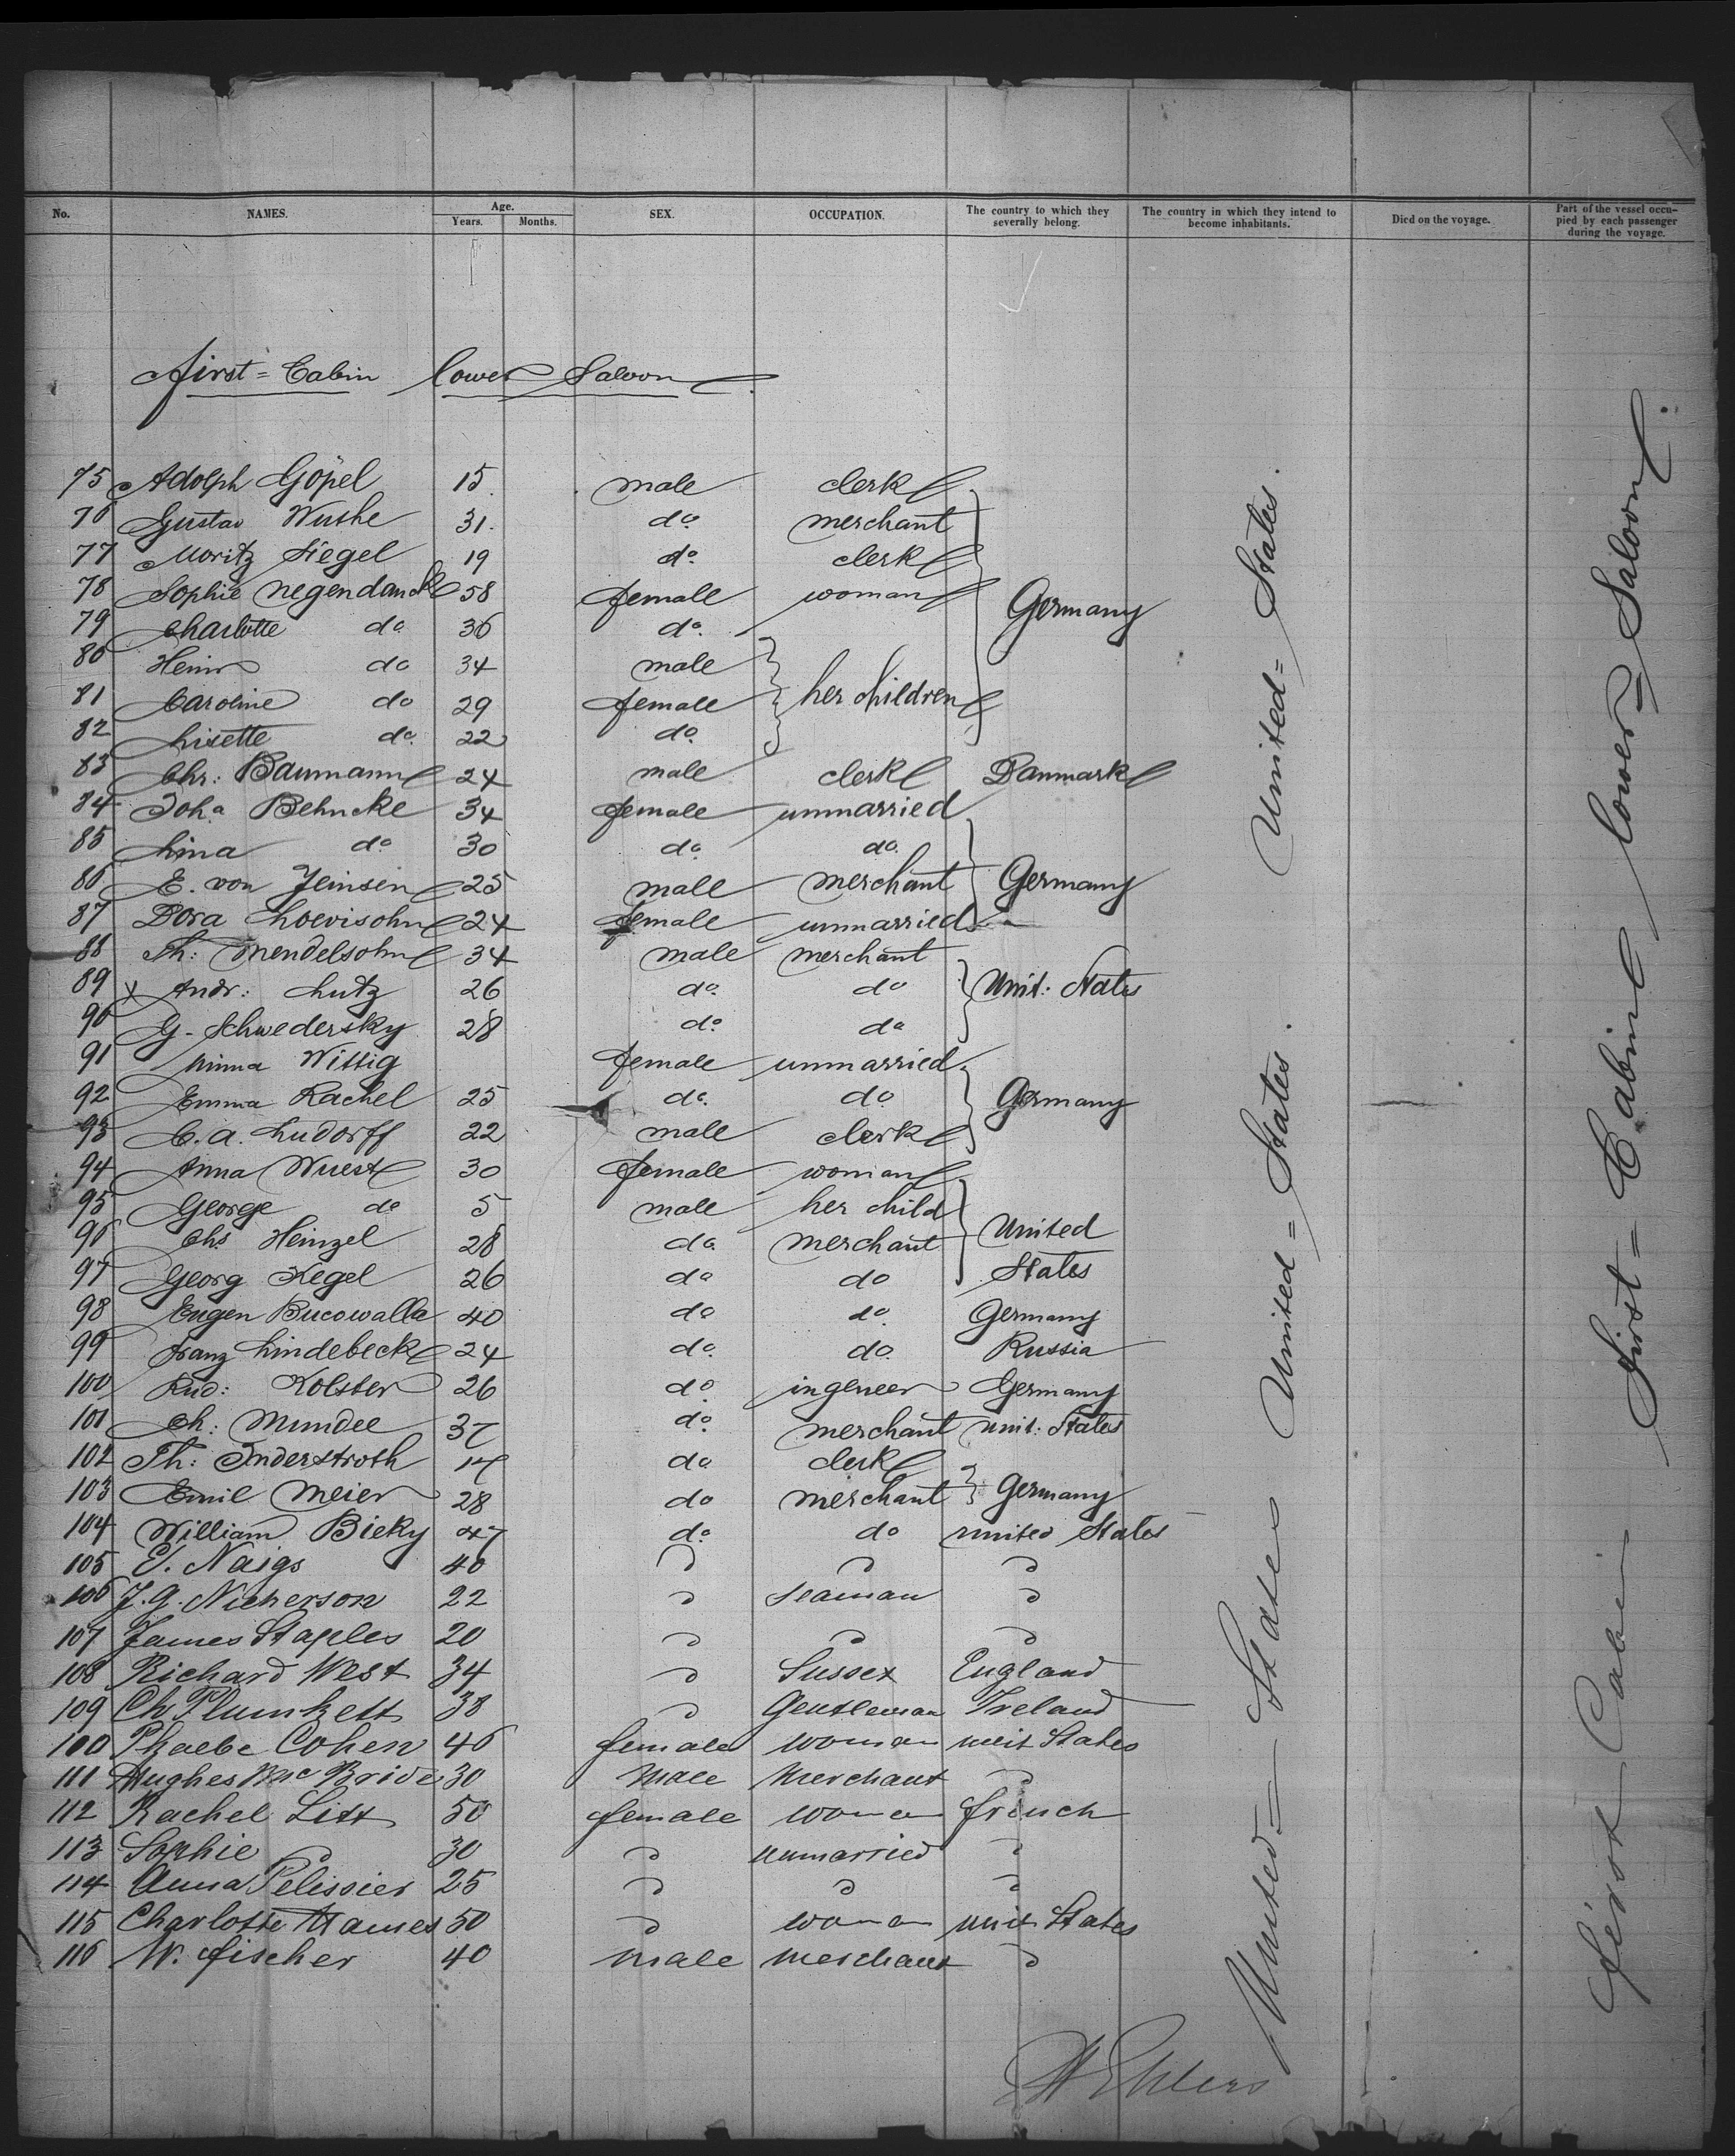 No. NAMES. Age. Years. Months. SEX. OCCUPATION. The country to which they severally belong. The country in which they intend to become inhabitants. Died on the voyage. Part of the vessel occupied by each passenger during the voyage.
First = Cabin lower Saloon
75 Adolph Göpel 15. male clerk
76 Gustav Wuthe 31. do merchant
77 Moritz Siegel 19 do. clerk
78 Sophie Negendanck 58 female woman Germany
79 Charlotte do 36 do.
80 Heinr do 34 male
81 Caroline do 29 female her children
82 Lisette do. 22 do.
83 Chr: Baumann 24 male clerk Danmark
84 Joha Behncke 34 female unmarried
85 Lina do 30 do. do.
86 E. von Jeinsen 25 male merchant Germany
87 Dora Loevisohn 24 female unmarried
88 Th: Mendelsohn 34 male merchant
89 x Andr: Lutz 26 do. do Unit: States
90 G. Schwedersky 28 do. do
91 Minna Wittig female unmarried
92 Emma Rachel 25 do. do Germany
93 C. A. Ludorff 22 male clerk
94 Anna Wuest 30 female woman
95 George do 5 male her child
96 Chs Heinzel 28 do. merchant United
97 Georg Kegel 26 do do States
98 Eugen Bucowalla 40 do do. Germany
99 Franz Lindebeck 24 do. do. Russia
100 Rud: Kolster 26 do ingeneer Germany
101 Ch: Mundee 37 do. merchant unit: States
102 Th: Inderstroth 17 do clerk
103 Emil Meier 28 do merchant Germany
104 William Bieky 47 do. do united States
105 E. Naigs 40 " " "
106 J. G. Nicherson 22 " Seaman "
107 James Staples 20 " " "
108 Richard West 34 " Sussex England
109 Ch Plumkett 38 " Gentleman Ireland
110 Phaebe Cohen 46 female woman unit States
111 Hughes Mac Bride 30 male Merchant "
112 Rachel Litt 50 female woman french
113 Sophie " 30 " unmarried "
114 Anna Pelissier 25 " " "
115 Charlotte Hames 50 " woman unit States
116 W. fischer 40 male merchant "
United = States.
United = States.
United = States
First = Cabin lower = Saloon.
first Cabin
Ehlers